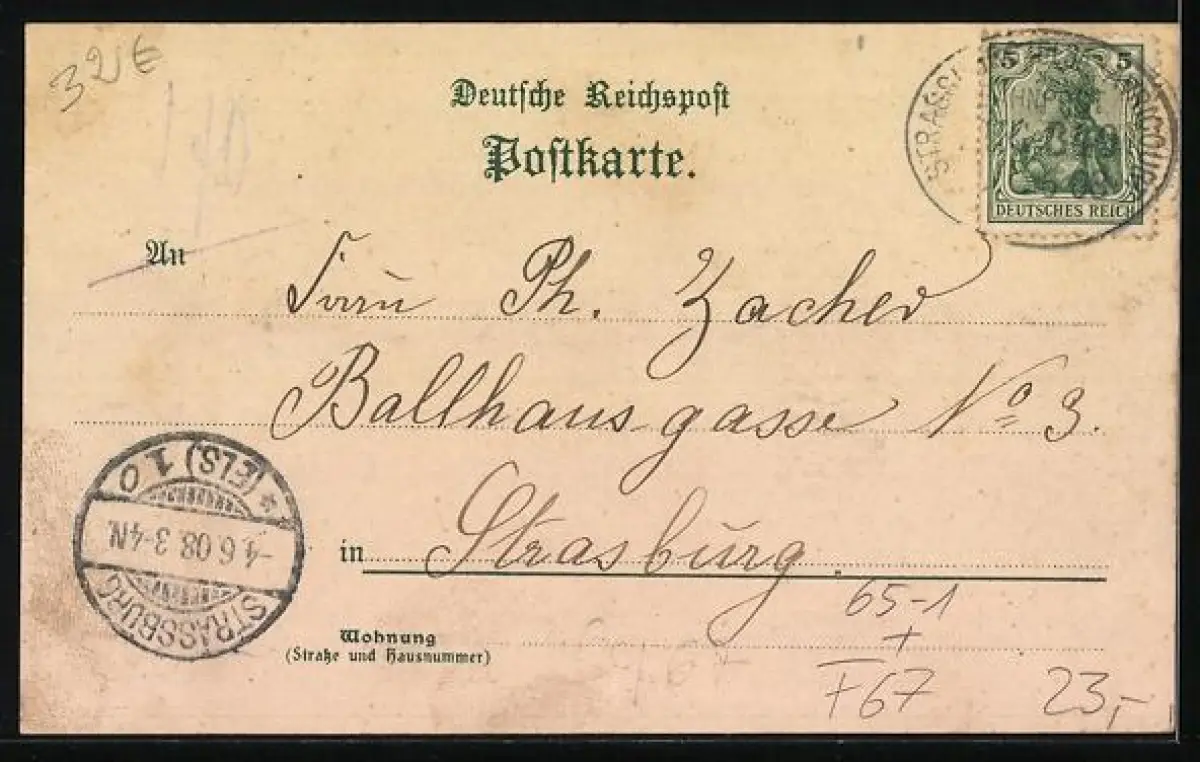 32€
Deutsche Reichspost
Postkarte.
5 5
DEUTSCHES REICH
An
Frau Ph. Zacher
Ballhausgasse No 3.
in Strasburg.
STRASSBURG
-4.6.08.3-4N.
* (ELS) 1 0
Wohnung
(Straße und Hausnummer)
65-1
+
F67
23,-